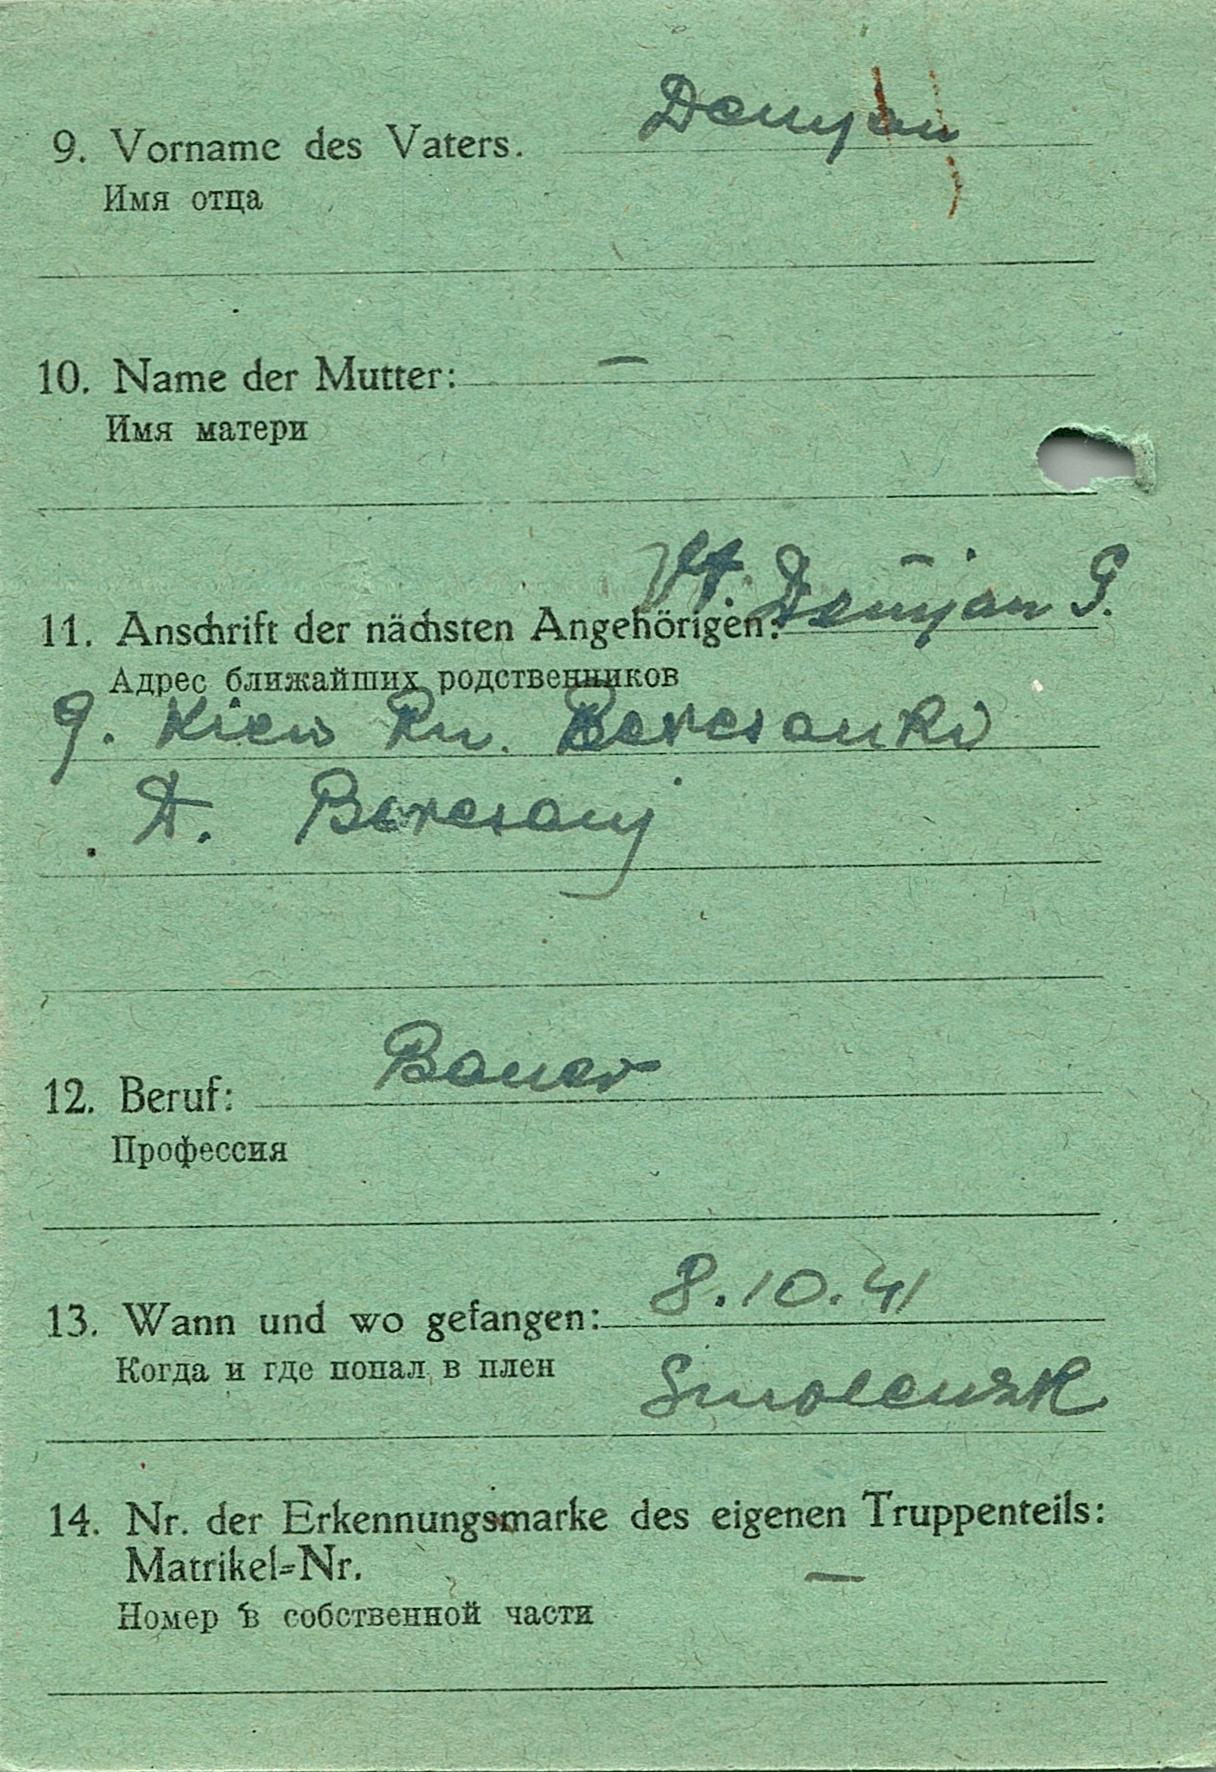 9. Vorname des Vaters. Demjan
Имя отца
10. Name der Mutter: —
Имя матери
Vt. Demjan G.
11. Anschrift der nächsten Angehörigen:
Адрес ближайших родственников
g. Kiew Rn. Beresanki
D. Beresanj
12. Beruf: Bauer
Профессия
13. Wann und wo gefangen: 8.10.41
Когда и где попал в плен Smolensk
14. Nr. der Erkennungsmarke des eigenen Truppenteils:
Matrikel=Nr. —
Номер в собственной части